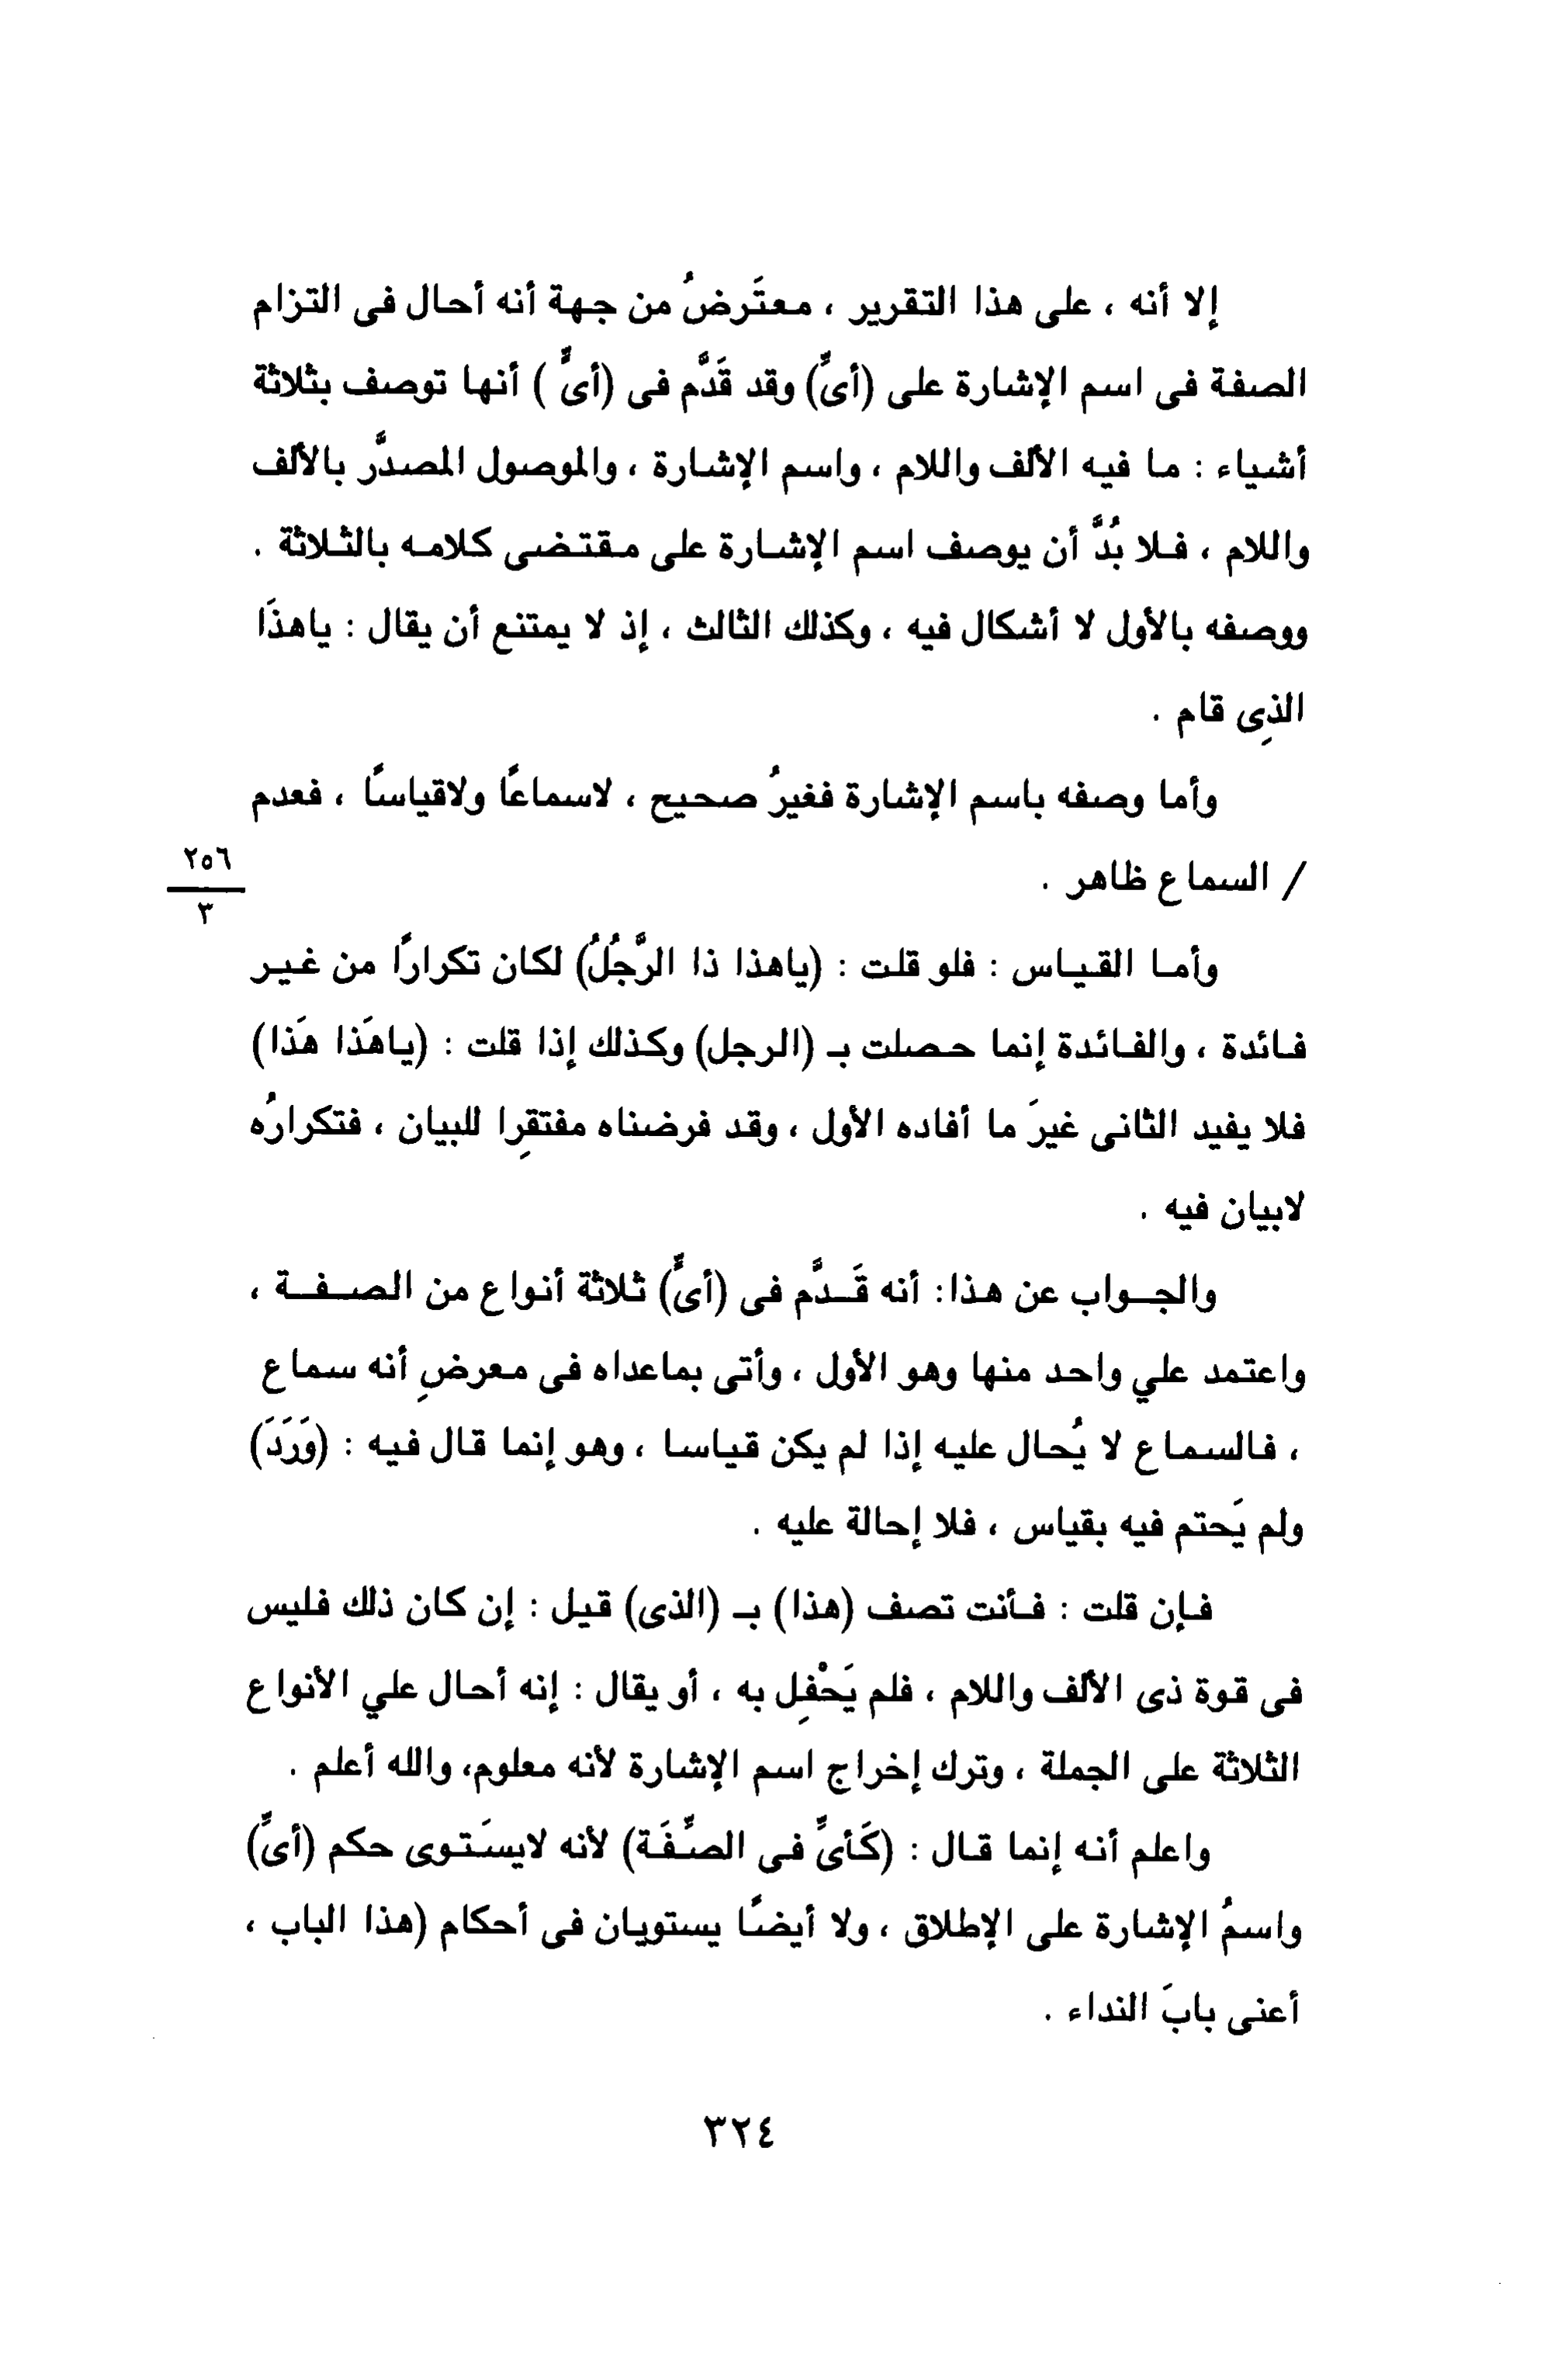 إلا أنه ، على هذا التقرير ، معتَرضُ من جهة أنه أحال فى التزام
الصفة فى اسم الإشارة على (أىٍّ) وقد قَدَّم فى (أىٍّ ) أنها توصف بثلاثة
أشياء : ما فيه الألف واللام ، واسم الإشارة ، والموصول المصدَّر بالألف
واللام ، فلا بُدَّ أن يوصف اسم الإشارة على مقتضى كلامه بالثلاثة .
ووصفه بالأول لا أشكال فيه ، وكذلك الثالث ، إذ لا يمتنع أن يقال : ياهذَا
الذِى قام .
وأما وصفه باسم الإشارة فغيرُ صحيح ، لاسماعًا ولاقياسًا ، فعدم
/ السماع ظاهر .
٢٥٦
٣
وأما القياس : فلو قلت : (ياهذا ذا الرَّجُلُ) لكان تكرارًا من غير
فائدة ، والفائدة إنما حصلت بـ (الرجل) وكذلك إذا قلت : (ياهَذا هَذا)
فلا يفيد الثانى غيرَ ما أفاده الأول ، وقد فرضناه مفتقِرا للبيان ، فتكرارُه
لابيان فيه .
والجواب عن هذا: أنه قَدَّم فى (أىٍّ) ثلاثة أنواع من الصفة ،
واعتمد علي واحد منها وهو الأول ، وأتى بماعداه فى معرضِ أنه سماع
، فالسماع لا يُحال عليه إذا لم يكن قياسا ، وهو إنما قال فيه : (وَرَدَ)
ولم يَحتم فيه بقياس ، فلا إحالة عليه .
فإن قلت : فأنت تصف (هذا) بـ (الذى) قيل : إن كان ذلك فليس
فى قوة ذى الألف واللام ، فلم يَحْفِل به ، أو يقال : إنه أحال علي الأنواع
الثلاثة على الجملة ، وترك إخراج اسم الإشارة لأنه معلوم، والله أعلم .
واعلم أنه إنما قال : (كَأىٍّ فى الصِّفَة) لأنه لايستَوى حكم (أىٍّ)
واسمُ الإشارة على الإطلاق ، ولا أيضًا يستويان فى أحكام (هذا الباب ،
أعنى بابَ النداء .
٣٢٤